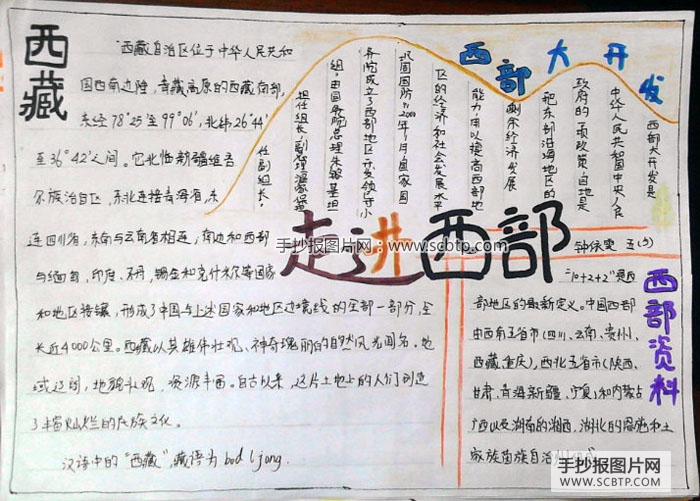 西藏
西藏自治区位于中华人民共和
国西南边陲，青藏高原的西藏南部，
东经78°25′至99°06′，北纬26°44′
至36°42′人间。它北临新疆维吾
尔族治自区，东北连接青海省，东
连四川省，东南与云南省相连，南边和西部
与缅甸，印度、不丹，锡金和克什米尔等国家
和地区接镶，形成了中国与上述国家和地区边境线的全部一部分，全
长近4000公里。西藏以其雄伟壮观、神奇瑰丽的自然风光闻名。地
域辽阔，地貌壮观、资源丰富。自古以来，这片土地上的人们创造
了丰富灿烂的民族文化。
汉语中的"西藏"，藏语为bod ljong.
西部大开发
西部大开发是
中华人民共和国中央人民
政府的一项政策，目地是
把东部沿海地区的
剩余经济发展
能力用以提高西部地
区的经济和社会发展水平
巩固国防，2000年1月，国家国
务院成立了西部地区开发领导小
组，由国务院总理朱镕基担
任担任组长，副总理温家保
任副组长，
走进西部
手抄报图片网：www.scbtp.com
钟依雯 五(5)
西部资料
"10+2+2"是西
部地区的最新定义。中国西部
由西南五省市（四川、云南、贵州、
西藏、重庆），西北五省市（陕西、
甘肃、青海、新疆、宁夏）和内蒙古
广西以及湖南的湘西、湖北的恩施和土
家族苗族自治
手抄报图片网
WWW.SCBTP.COM